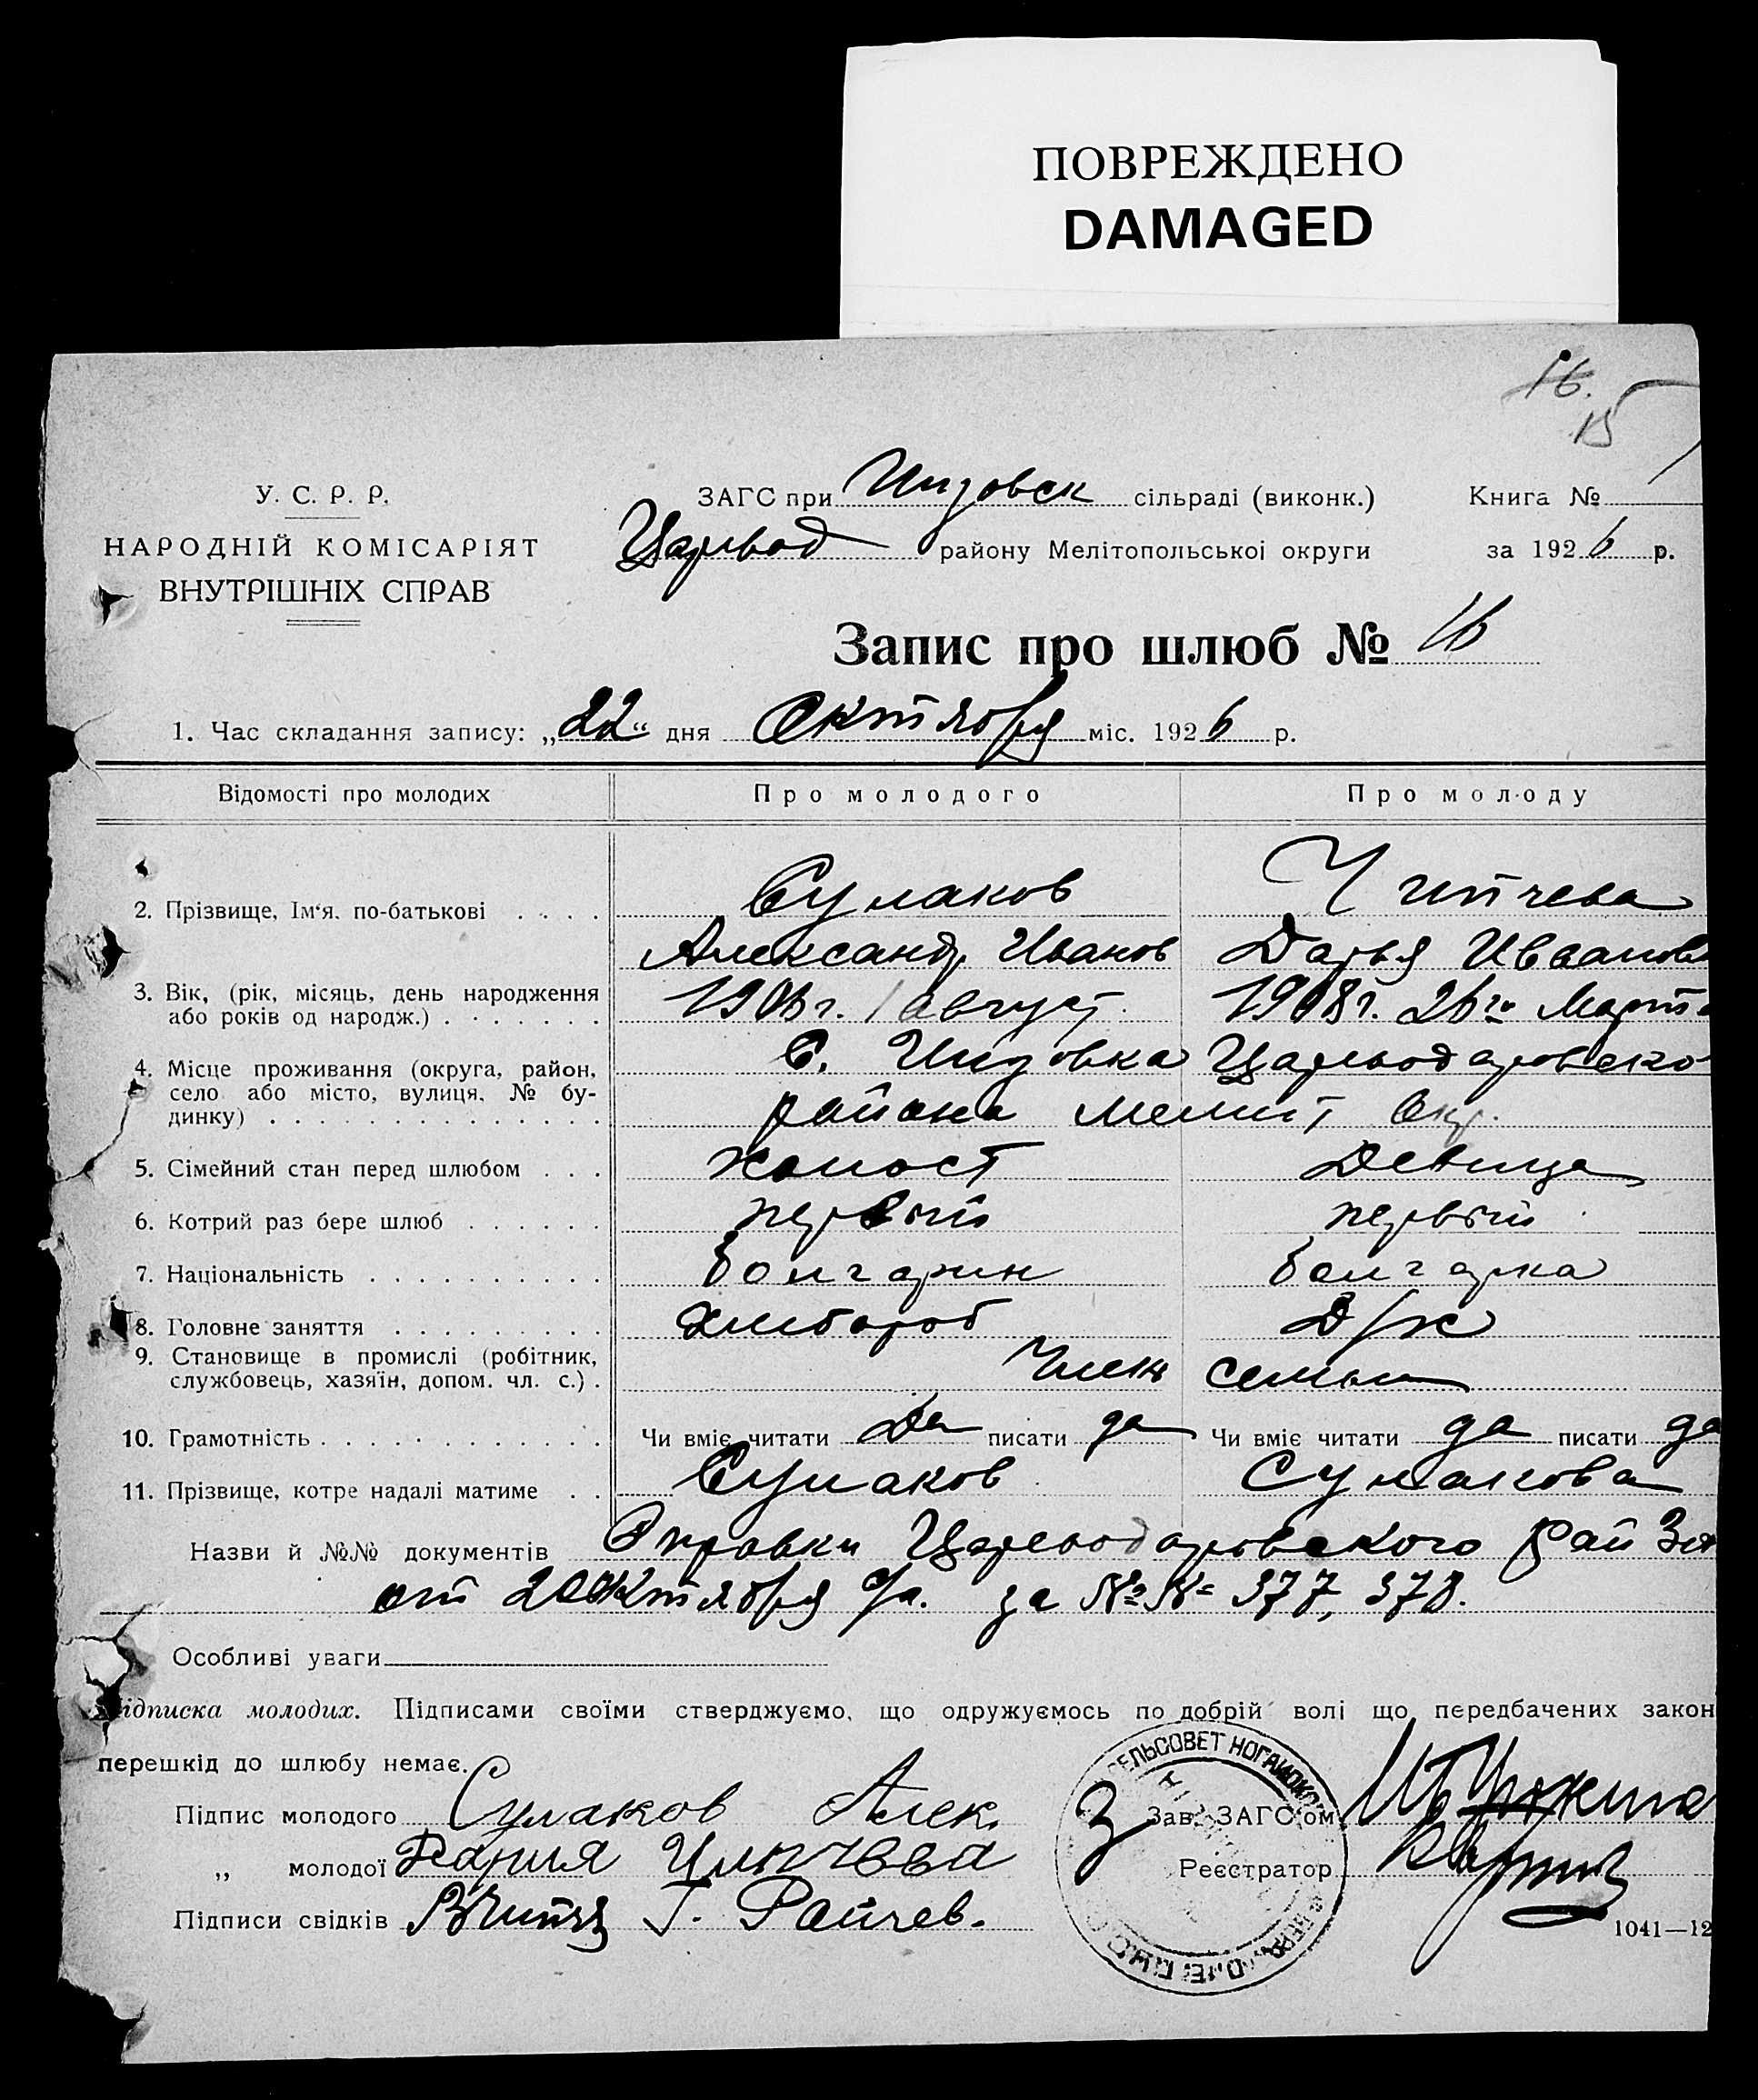 ПОВРЕЖДЕНО
DAMAGED
16.
15
У. С. Р. Р.
НАРОДНІЙ КОМІСАРІЯТ
ВНУТРІШНІХ СПРАВ
ЗАГС при сільраді (виконк.) Книга №
Царевод району Мелітопольської округи за 1926 р.
Запис про шлюб № 16
1. Час складання запису: „22“ дня Октября міс. 1926 р.
Відомості про молодих Про молодого Про молоду
2. Прізвище, Ім‘я, по-батькові . . . . Сулаков
Александр Иванов Дарья Иванов
3. Вік, (рік, місяць, день народження
або років од народж.) . . . . . . . 1906 г. 1 август 1908 г. 26 го Марта
4. Місце проживання (округа, район,
село або місто, вулиця, № бу-
динку) . . . . . . . . . . . . . . С. Цареводаровско
района Мелит Окр.
5. Сімейний стан перед шлюбом . . . Холост Девица
6. Котрий раз бере шлюб . . . . . . первый первый
7. Національність . . . . . . . . . . болгарин болгарка
8. Головне заняття . . . . . . . . . Хлебороб Д/х
9. Становище в промислі (робітник,
службовець, хазяїн, допом. чл. с.) . Член семьи
10. Грамотність . . . . . . . . . . . . Чи вміє читати Да писати да Чи вміє читати да писати да
11. Прізвище, котре надалі матиме . . Сулаков Сулакова
Назви й №№ документів Справки Цареводаровского Рай
от 20 Октября с/г. за №№ 377, 378.
Особливі уваги
Підписка молодих. Підписами своїми стверджуємо, що одружуємось по добрій волі що передбачених закон
перешкід до шлюбу немає.
Підпис молодого Сулаков Алек. Зав. ЗАГС‘ом
„ молодої Дария Чипчева Реєстратор
Підписи свідків Г. Райчев.
СЕЛЬСОВЕТ НОГАЙСКОГО
1041—12